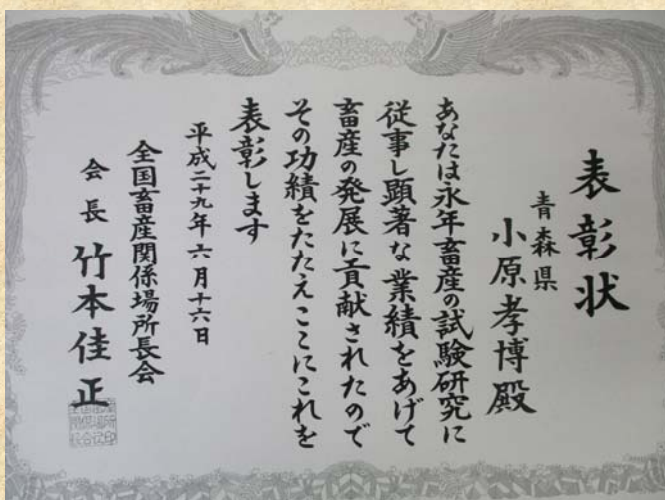 表彰状
青森県
小原孝博殿
あなたは永年畜産の試験研究に
従事し顕著な業績をあげて
畜産の発展に貢献されたので
その功績をたたえここにこれを
表彰します
平成二十九年六月十六日
全国畜産関係場所長会
会長 竹本佳正